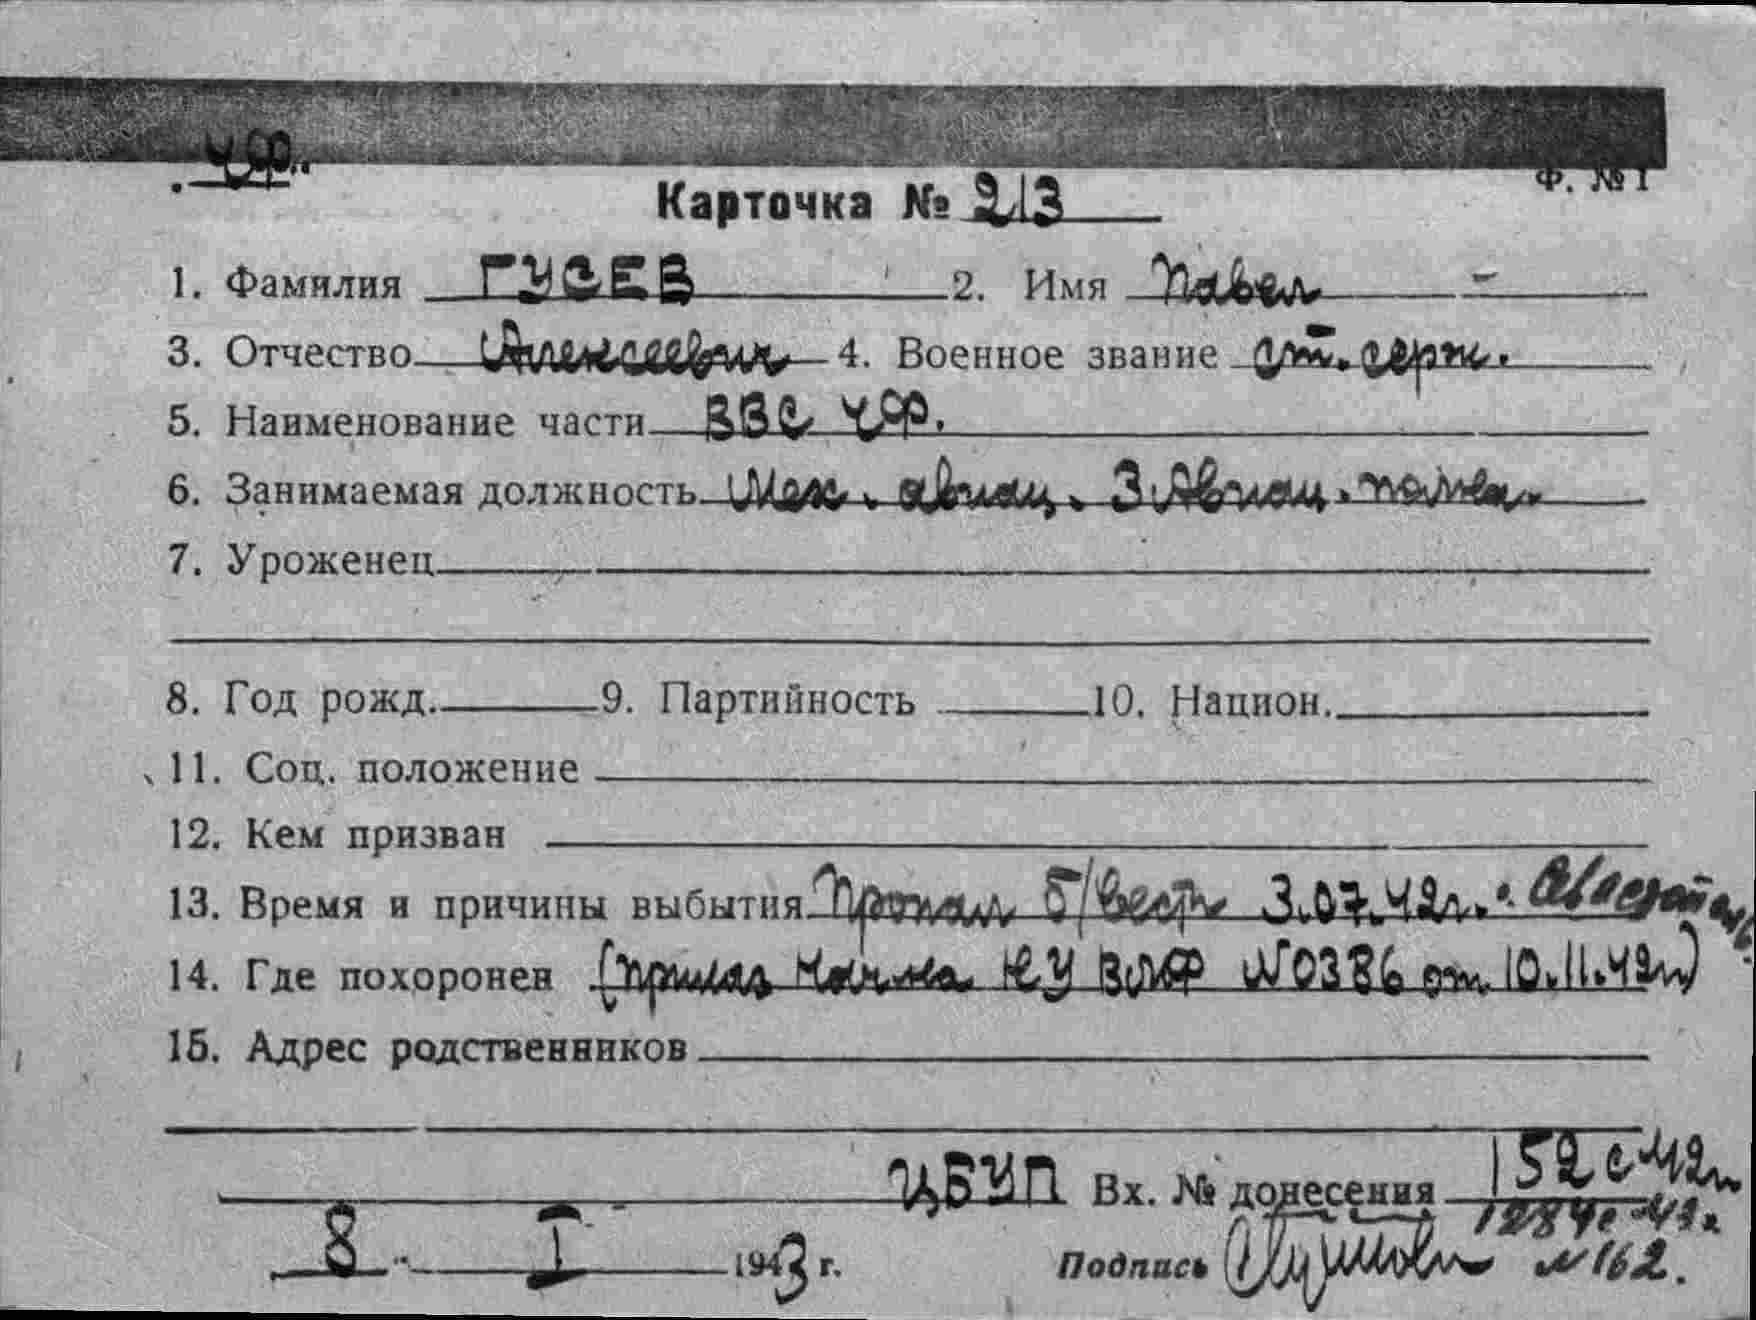 ЧФ.
Ф. № 1
Карточка № 213
1. Фамилия ГУСЕВ 2. Имя Павел -
3. Отчество Алексеевич 4. Военное звание ст. серж.
5. Наименование части ВВС ЧФ.
6. Занимаемая должность Мех. авиац. 3 Авиац. полка.
7. Уроженец
8. Год рожд. 9. Партийность 10. Национ.
11. Соц. положение
12. Кем призван
13. Время и причины выбытия Пропал б/вести 3.07.42г.
14. Где похоронен (приказ Нач-ка КУ ВМФ №0386 от 10.11.42г)
15. Адрес родственников
ЦБУП Вх. № донесения 152с 42г.
8 I 1943 г. Подпись №162.